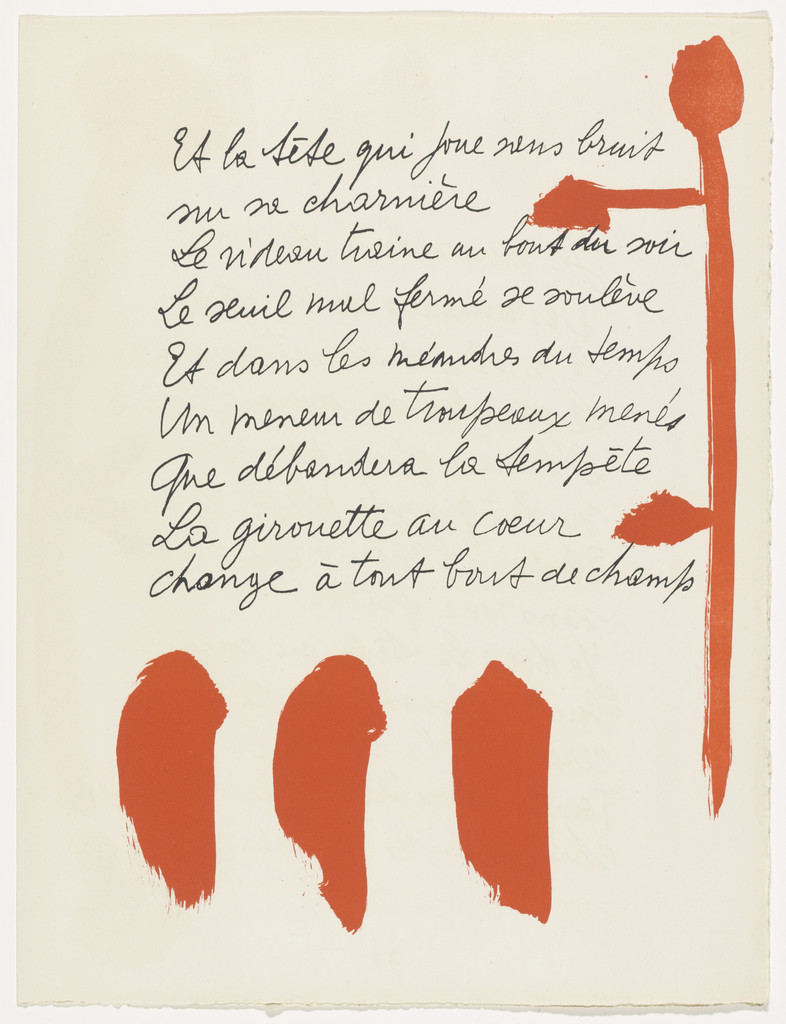 Et la tête qui joue sans bruit
sur sa charnière
Le rideau traine au bout du soir
Le seuil mal fermé se soulève
Et dans les méandres du temps
Un meneur de troupeaux menés
Que débandera la tempête
La girouette au coeur
change à tout bout de champs